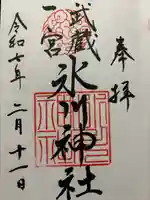 奉拝
武蔵
一宮
氷川神社
令和七年
二月十一日